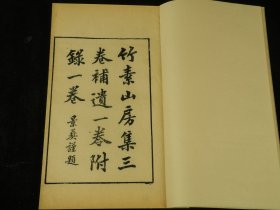 竹素山房集三
卷補遺一卷附
錄一卷
景葵謹題